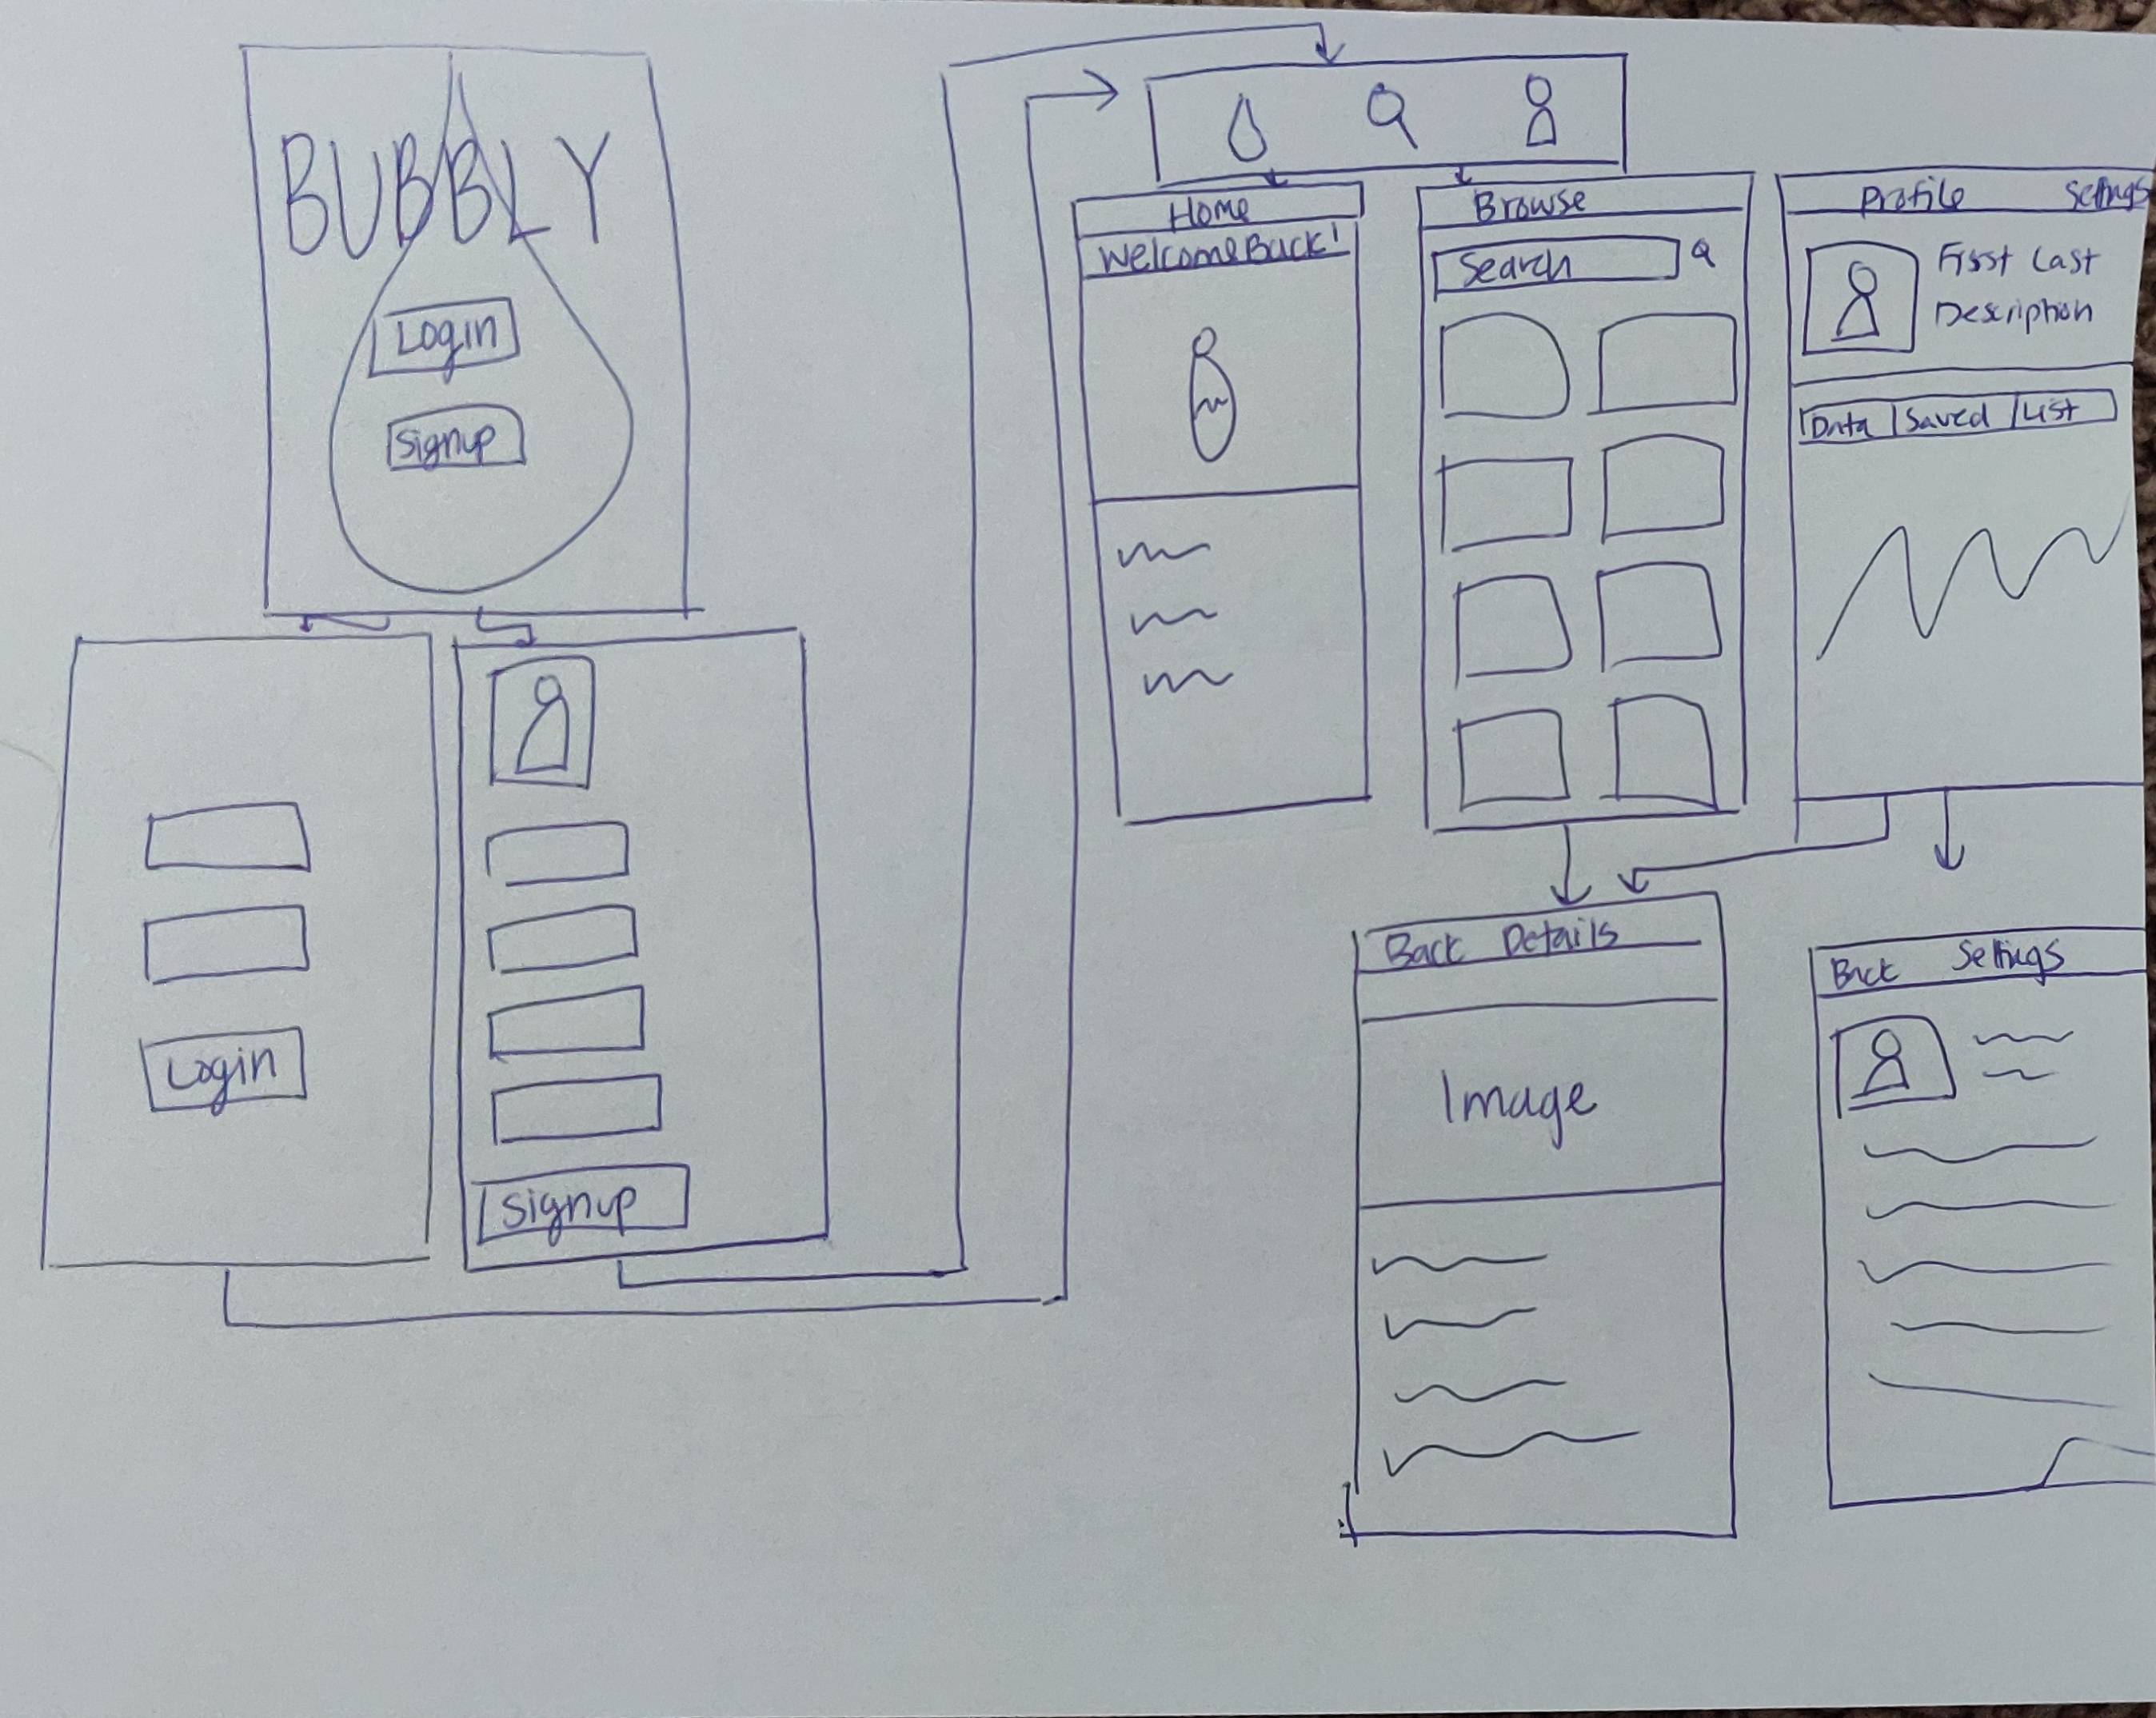 BUBBLY
Login
Signup
Login
Signup
Home
Welcome Back!
Browse
Search
Profile Settings
First Last
Description
Data Saved List
Back Details
Image
Back Settings